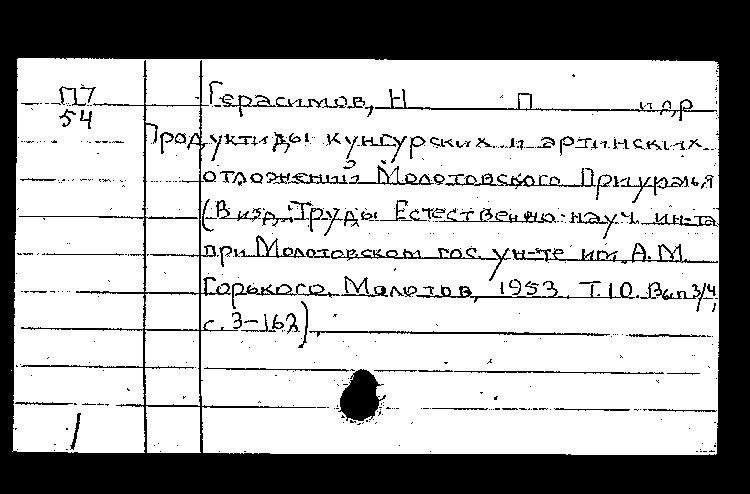 П7
54
Герасимов, Н П и др
Продуктиды кунгурских и артинских
отложений Молотовского Приуралья
(В изд. Труды Естественно-науч. ин-та
при Молотовском гос. ун-те им. А.М.
Горького. Молотов, 1953. Т.10. Вып 3/4,
с. 3-162).